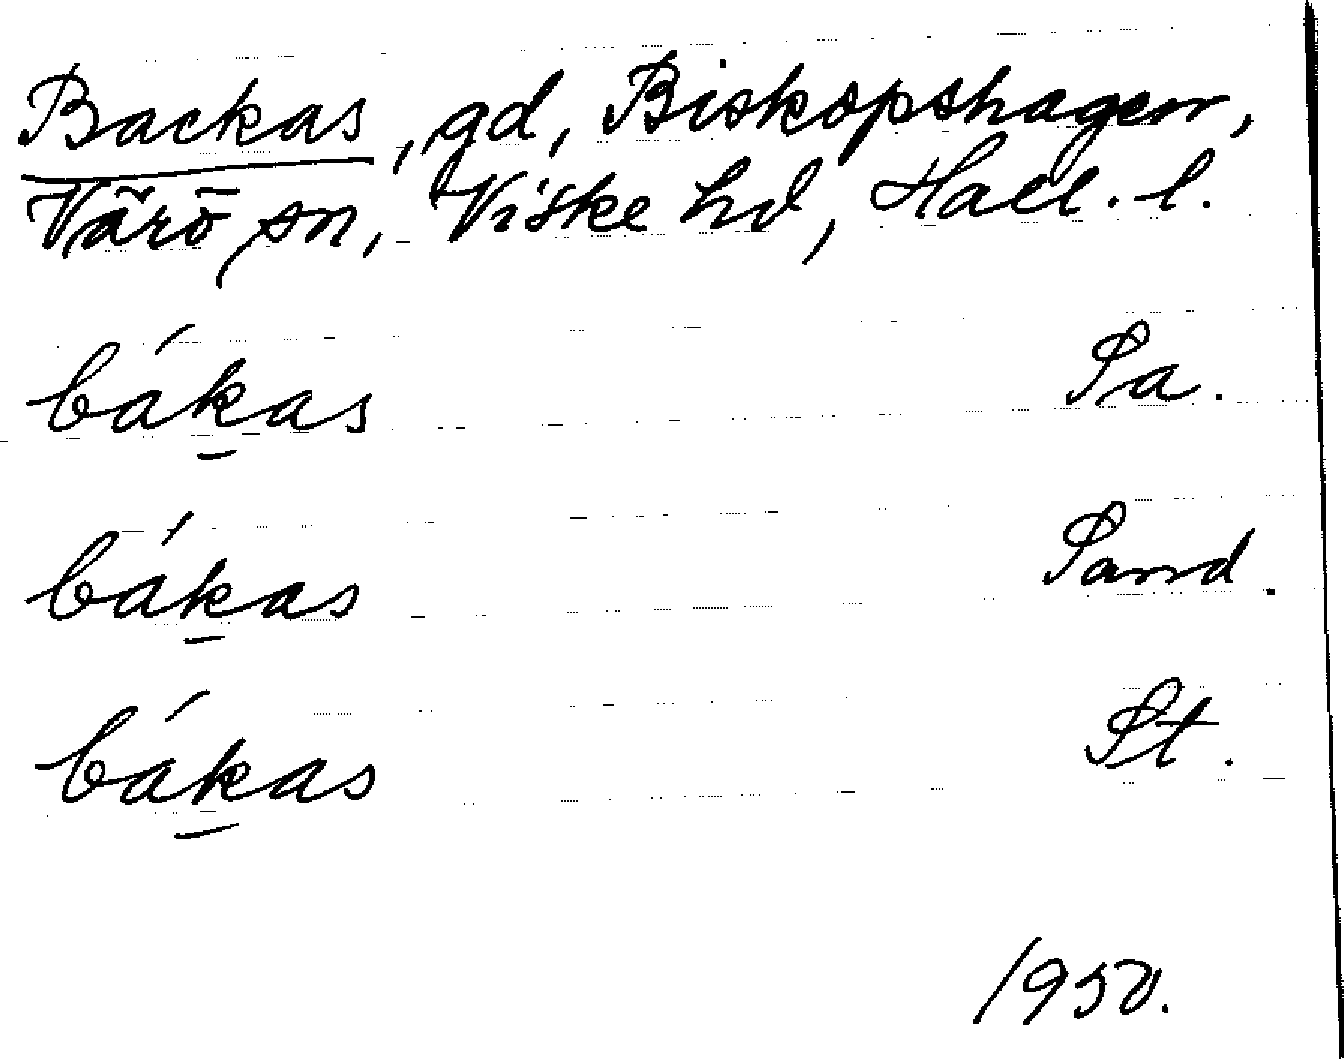 Backas, gd, Biskopshagen,
Värö sn, Viske hd, Hall. l.
bák̲as Sa.
bák̲as Sand.
bák̲as St.
1950.